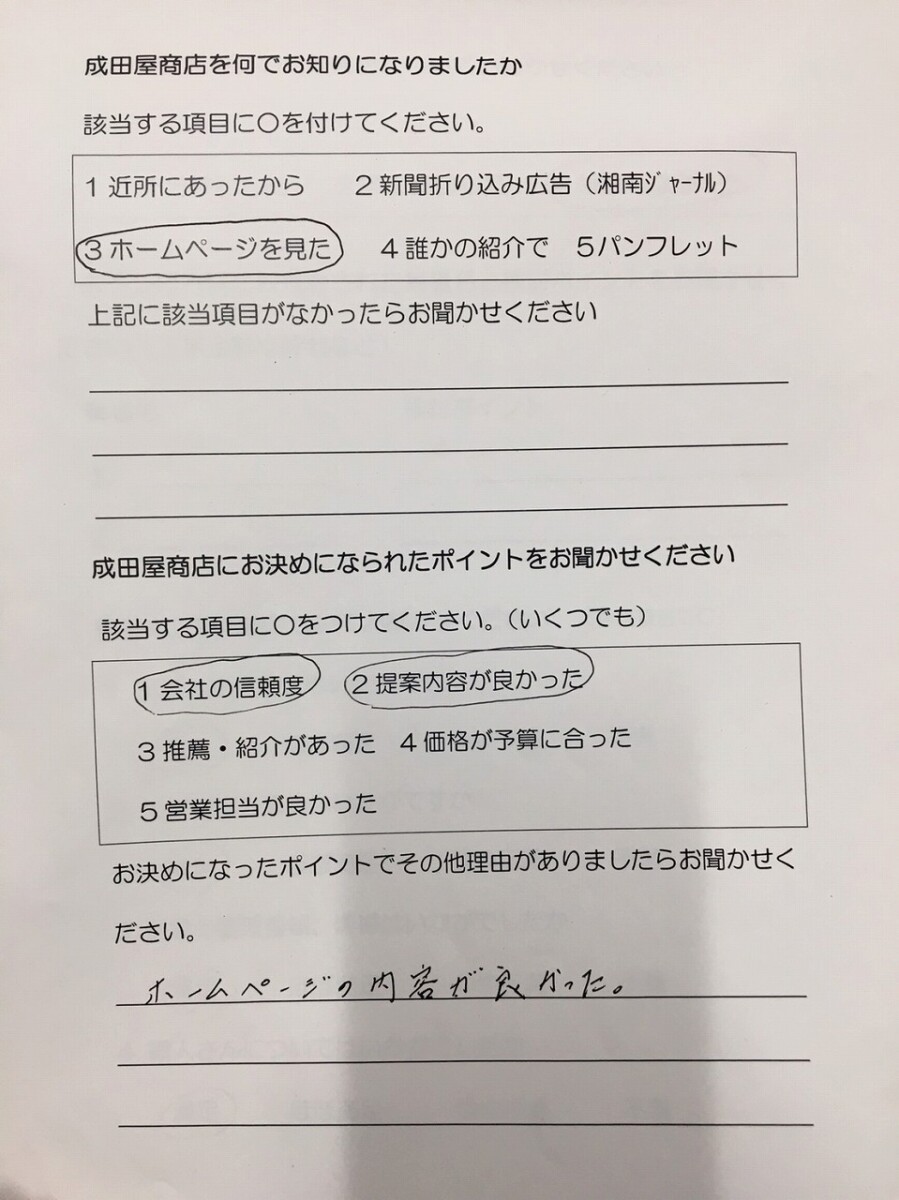 成田屋商店を何でお知りになりましたか
該当する項目に〇を付けてください。
1 近所にあったから　2 新聞折り込み広告（湘南ｼﾞｬｰﾅﾙ）
3 ホームページを見た　4 誰かの紹介で　5パンフレット
上記に該当項目がなかったらお聞かせください
成田屋商店にお決めになられたポイントをお聞かせください
該当する項目に〇をつけてください。（いくつでも）
1 会社の信頼度　2 提案内容が良かった
3 推薦・紹介があった　4 価格が予算に合った
5 営業担当が良かった
お決めになったポイントでその他理由がありましたらお聞かせく
ださい。
ホームページの内容が良かった。